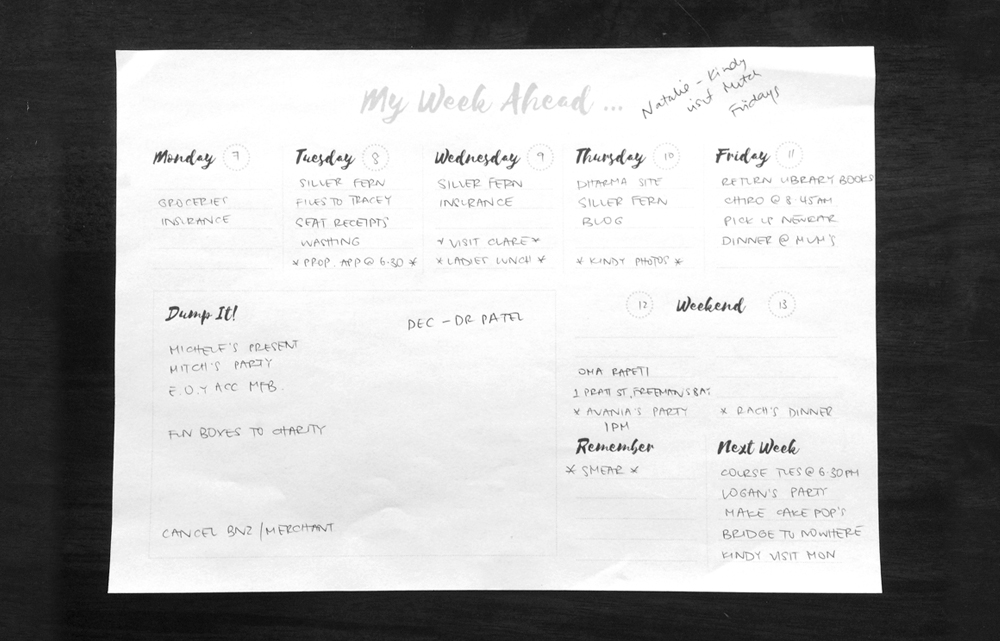 My Week Ahead ...
Natalie - Kindy
visit Mitch
Fridays
Monday 7
GROCERIES
INSURANCE
Tuesday 8
SILVER FERN
FILES TO TRACEY
SEAT RECEIPTS
WASHING
* PROP. APP @ 6.30 *
Wednesday 9
SILVER FERN
INSURANCE
* VISIT CLARE *
* LADIES LUNCH *
Thursday 10
DHARMA SITE
SILVER FERN
BLOG
* KINDY PHOTOS *
Friday 11
RETURN LIBRARY BOOKS
CHIRO @ 8.45AM
PICK UP NEWCAR
DINNER @ MUM'S
Dump It!
DEC - DR PATEL
MICHELE'S PRESENT
MITCH'S PARTY
E.O.Y ACC MFB.
FUN BOXES TO CHARITY
CANCEL BNZ / MERCHANT
12 Weekend 13
OMA RAPETI
1 PRATT ST, FREEMANS BAY
* AVANIA'S PARTY
1PM
* RACH'S DINNER
Remember
* SMEAR *
Next Week
COURSE TUES @ 6.30PM
LOGAN'S PARTY
MAKE CAKE POP'S
BRIDGE TO NOWHERE
KINDY VISIT MON